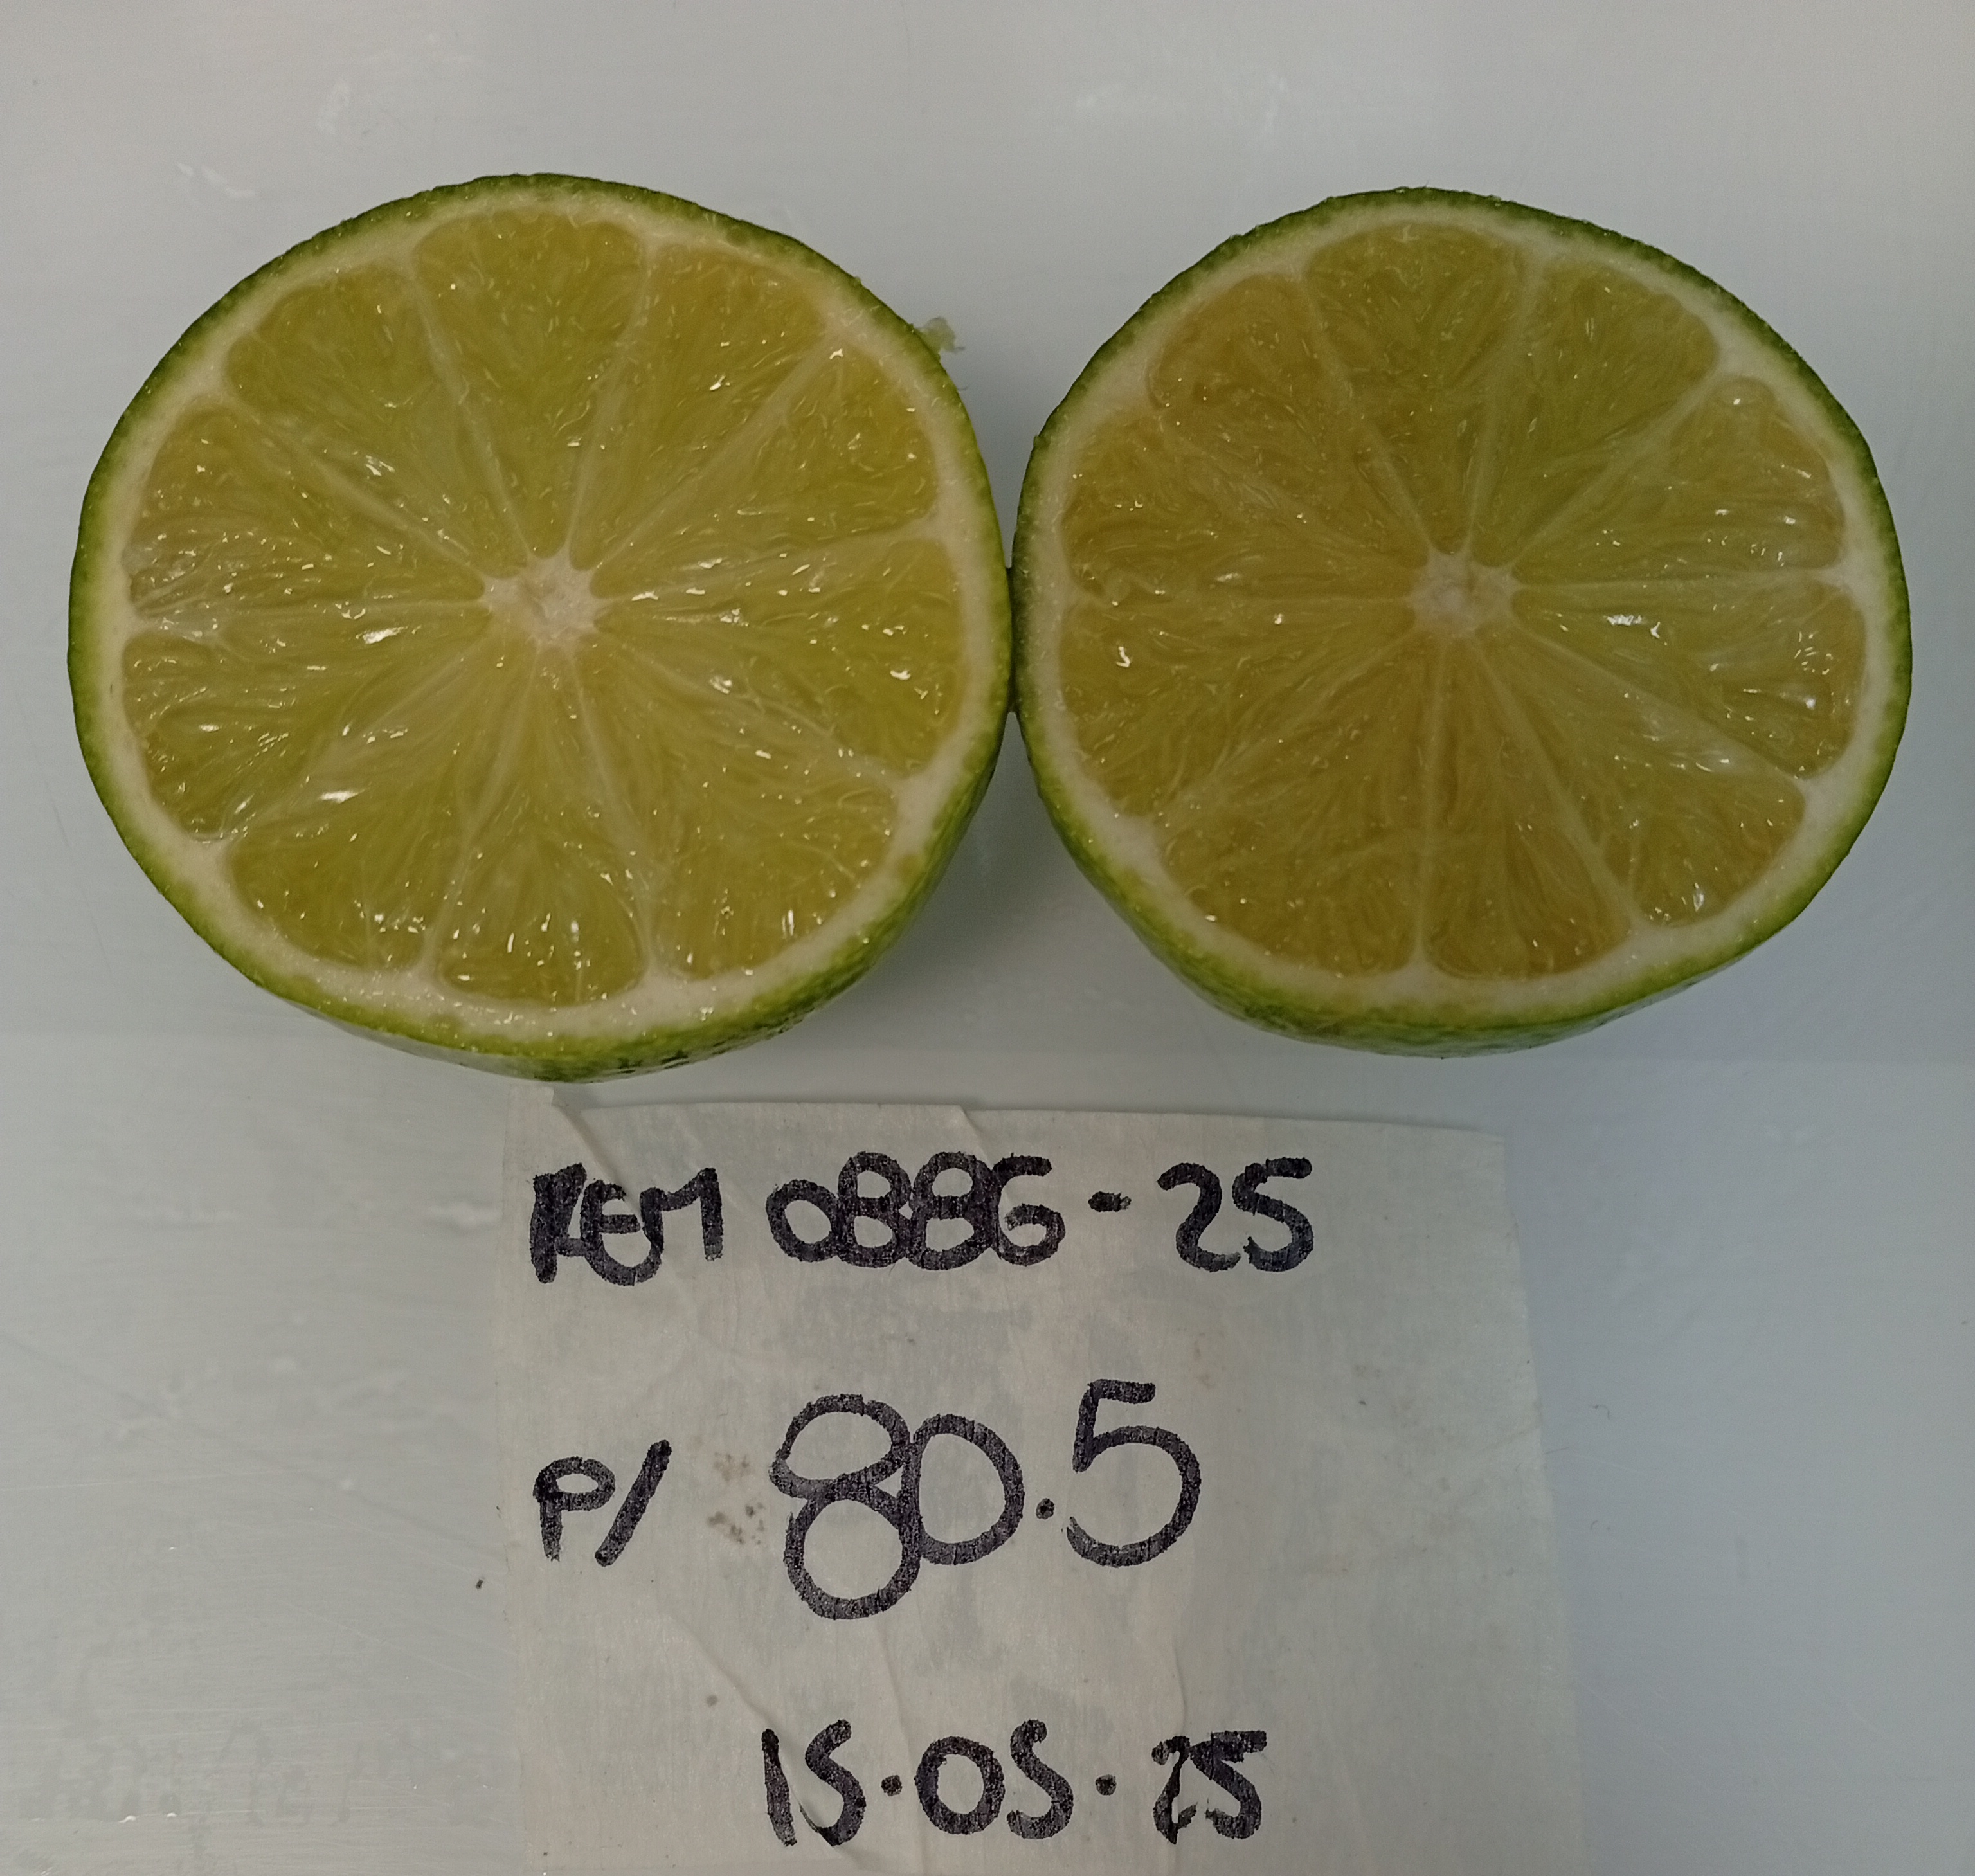 REM 0886-25
P/ 80.5
15.05.25